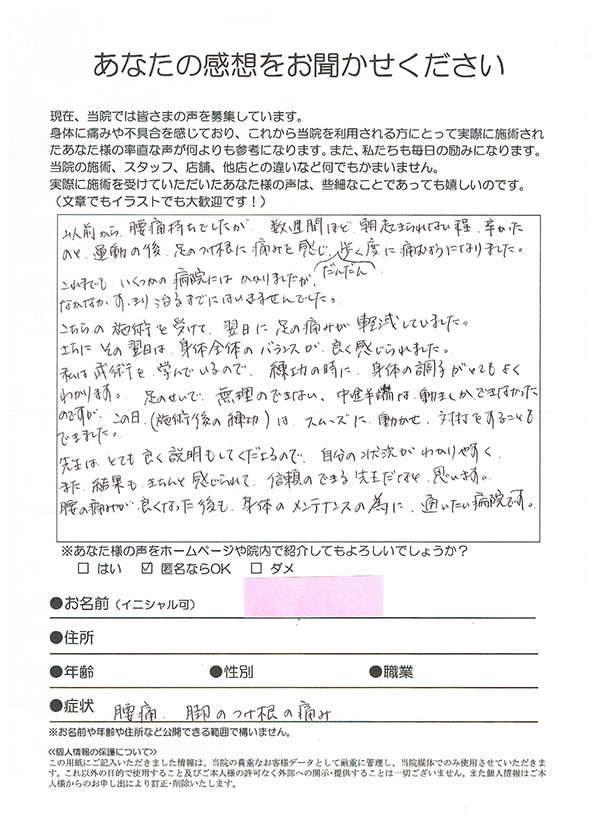 あなたの感想をお聞かせください
現在、当院では皆さまの声を募集しています。
身体に痛みや不具合を感じており、これから当院を利用される方にとって実際に施術され
たあなた様の率直な声が何よりも参考になります。また、私たちも毎日の励みになります。
当院の施術、スタッフ、店舗、他店との違いなど何でもかまいません。
実際に施術を受けていただいたあなた様の声は、些細なことであっても嬉しいのです。
（文章でもイラストでも大歓迎です！）
以前から、腰痛持ちでしたが、数週間ほど、朝起きられない程、辛かた
のと、運動の後、足のつけ根に痛みを感じ、歩く度に痛むようになりました。
だんだん
これまでも、いくつかの病院にはかかりましたが、
なかなかすっきり治るまでにはいきませんでした。
こちらの施術を受けて、翌日に足の痛みが軽減していました。
さらにその翌日は、身体全体のバランスが、良く感じられました。
私は武術を学んでいるので、練功の時に、身体の調子がとてもよく
わかります。足のせいで、無理のできない、中途半端な動きしかできなかった
のですが、この日、(施術後の練功)は、スムーズに動かせ、対打をすることも
できました。
先生は、とても良く説明もしてくださるので、自分の状況がわかりやすく、
また、結果もきちんと感じられて、信頼のできる先生だなと思います。
腰の痛みが良くなった後も、身体のメンテナンスの為に、通いたい病院です。
※あなた様の声をホームページや院内で紹介してもよろしいでしょうか？
□ はい ☑ 匿名ならOK □ ダメ
●お名前（イニシャル可）
●住所
●年齢 ●性別 ●職業
●症状 腰痛、脚のつけ根の痛み
※お名前や年齢や住所など公開できる範囲で構いません。
≪個人情報の保護について≫
この用紙にご記入いただきました情報は、当院の貴重なお客様データとして厳重に管理し、当院媒体でのみ使用させていただきま
す。これ以外の目的で使用すること及びご本人様の許可なく外部への開示・提供することは一切ございません。また個人情報はご本
人様からのお申し出により訂正・削除いたします。